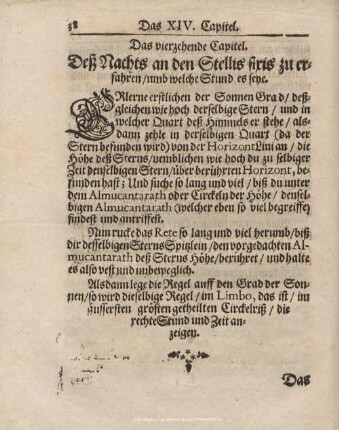 38 Das XIV. Capitel.
Das vierzehende Capitel.
Deß Nachts an den Stellis fixis zu er-
fahren/ unnb welche Stund es seye.
ERlerne erstlichen der Sonnen Grad/ deß-
gleichen wie hoch derselbige Stern/ und in
welcher Quart deß Himmels er stehe/ als-
dann zehle in derselbigen Quart (da der
Stern befunden wird) von der Horizont Linian/ die
Höhe deß Sterns/ nemblichen wie hoch du zu selbiger
Zeit denselbigen Stern/ über berührten Horizont, be-
funden hast; Und suche so lang und viel/ biß du unter
dem Almucantarath oder Circkeln der Höhe/ densel-
bigen Almucantarath (welcher eben so viel begreiffet)
findest und antriffest.
Nun rucke das Rete so lang und viel herumb/ biß
dir desselbigen Sterns Spitzlein/ den vorgedachten Al-
mucantarath deß Sterns Höhe/ berühret/ und halte
es also vest und unbeweglich.
Alsdann lege die Regel auff den Grad der Son-
nen/ so wird dieselbige Regel/ im Limbo, das ist/ im
äussersten grösten getheilten Circkelriß/ die
rechte Stund und Zeit an-
zeigen.
Das